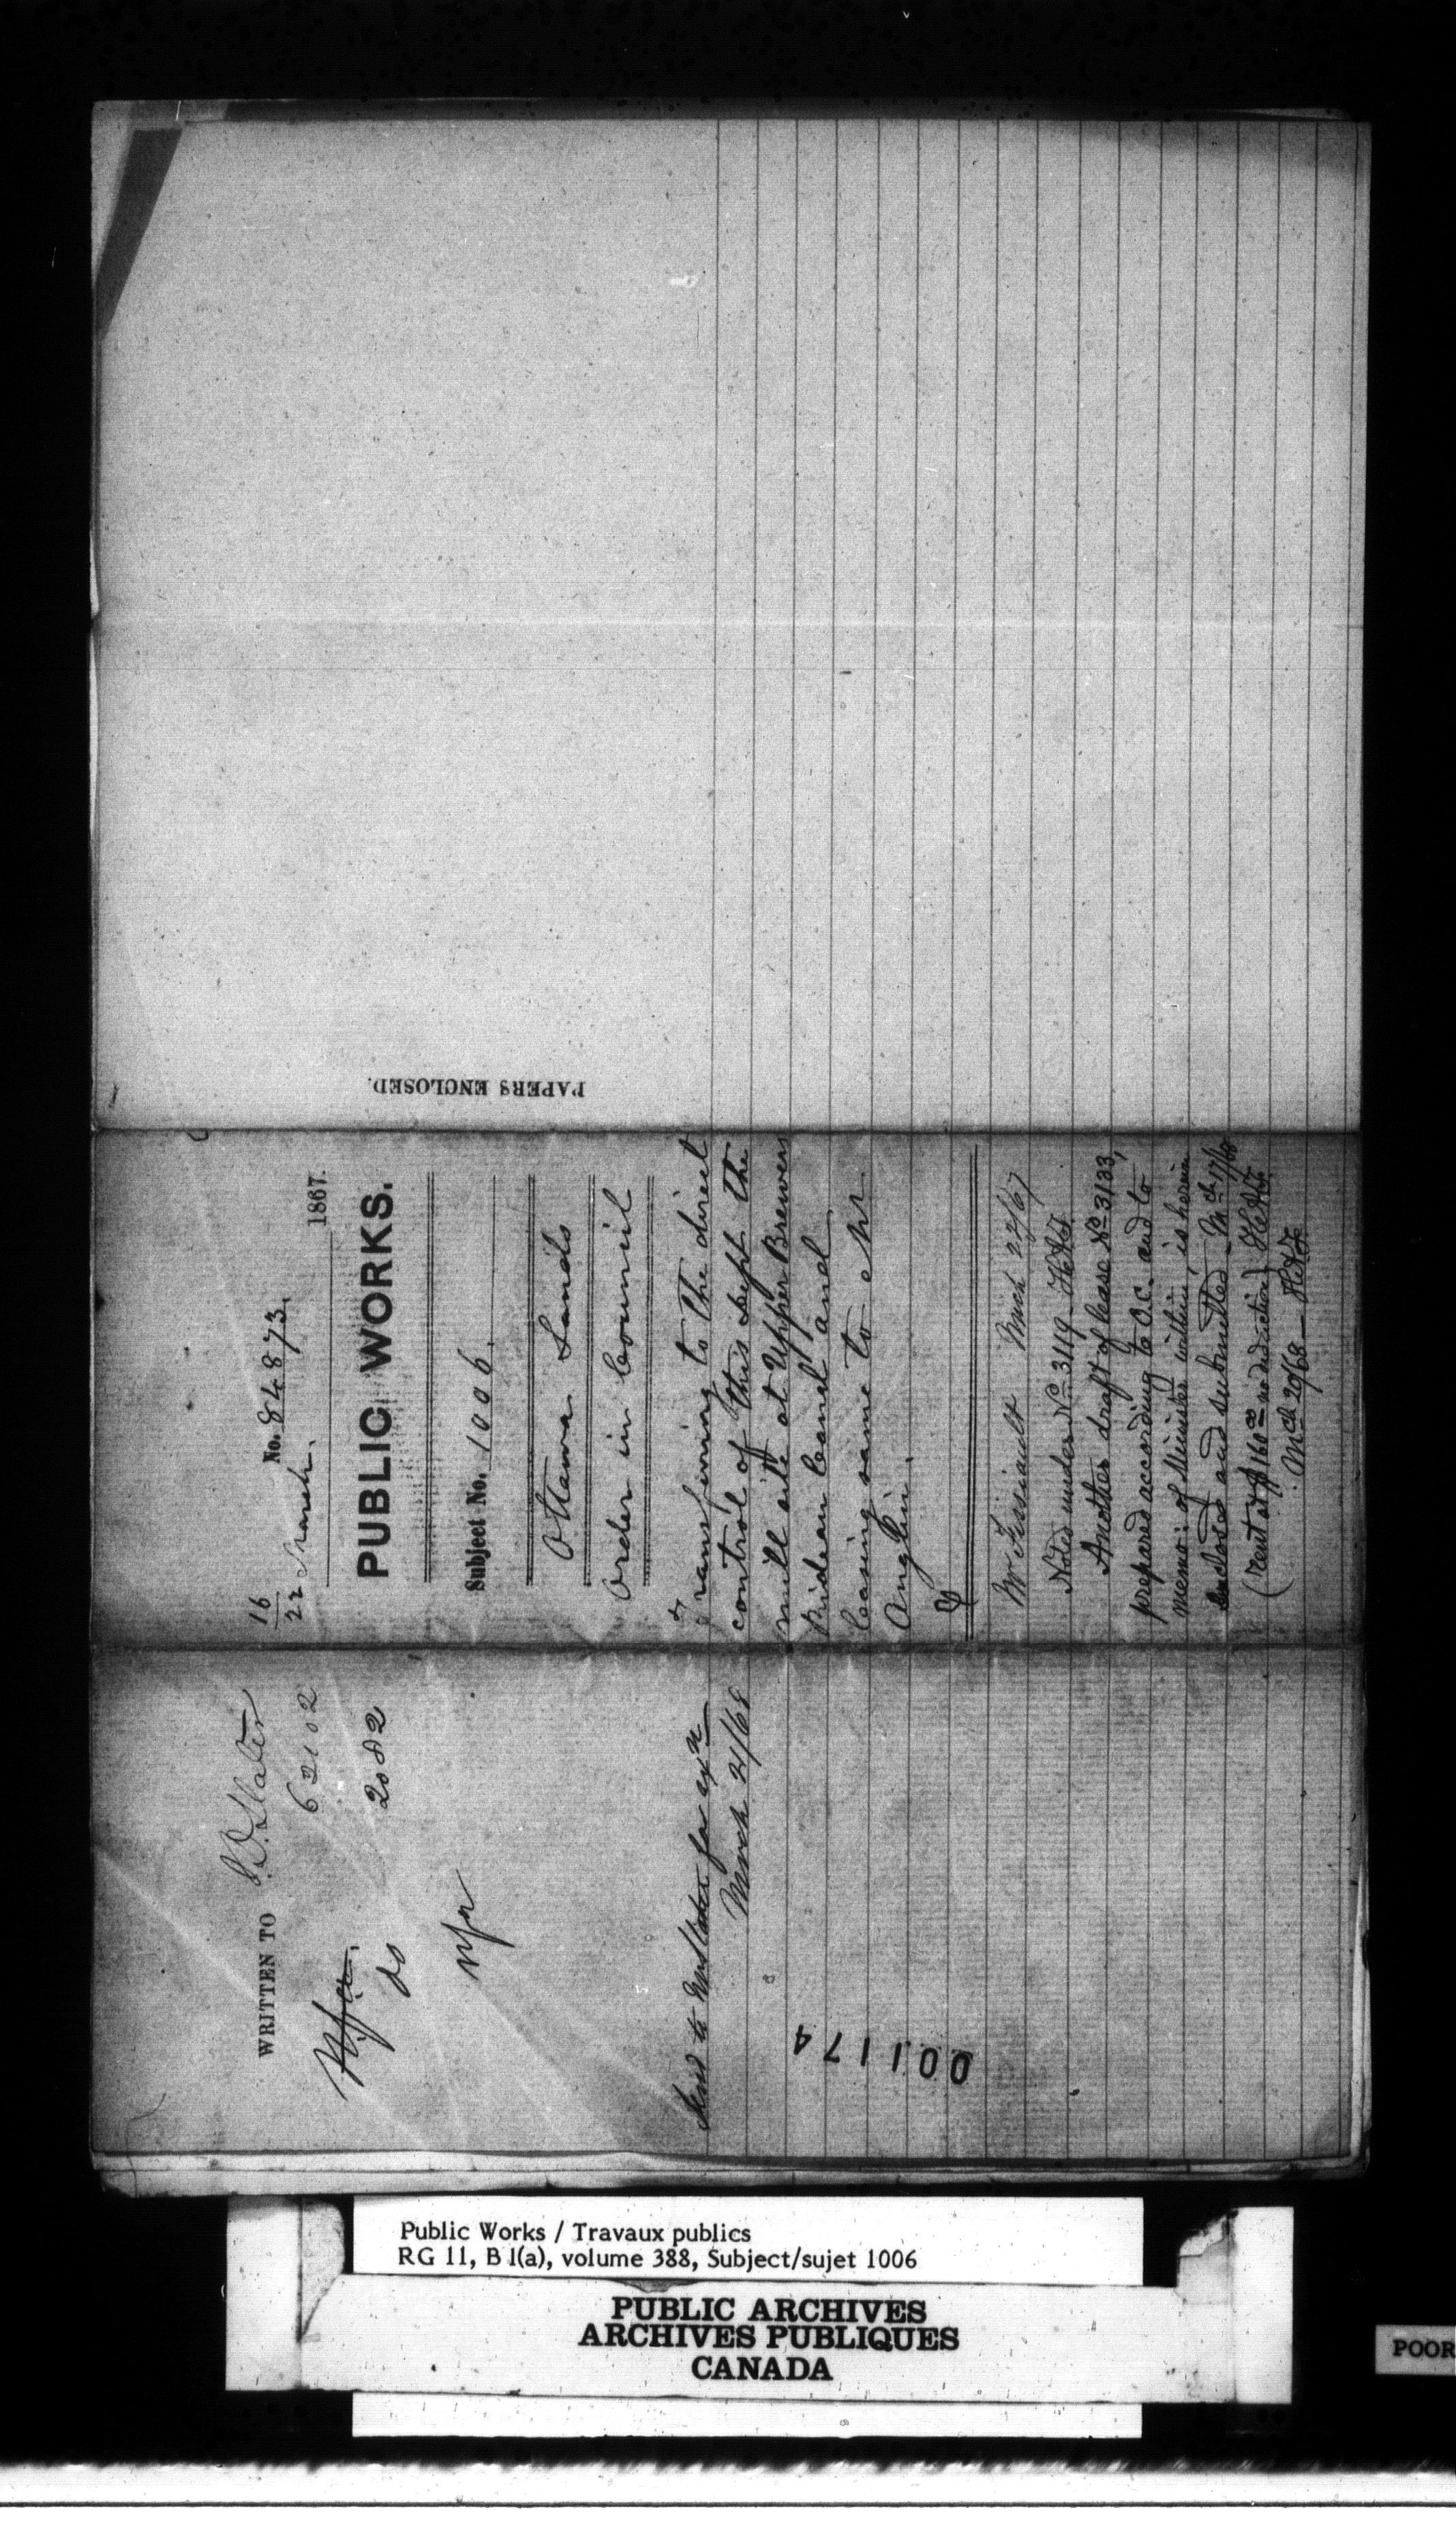 PAPERS ENCLOSED.
16/22 March. No. 84873.
1867.
PUBLIC WORKS.
Subject No. 1006.
Ottawa Lands
Order in Council
Transferring to the direct
control of this Dept the
mill site at Upper Brewers
Rideau Canal and
leasing same to Mr
Anglin.
Mr Fissiault March 22/67
Noted under No 3119
Another draft of lease No 3133,
prepared according to O.C. and to
memo: of Minister within, is herein
enclosed and submitted — Mch 17/68
(rent at $160.00 no reduction)
Mch 20/68 —
WRITTEN TO J.D. Slater
62102
do 2082
Send to Mr Slater for exn
March 21/68
001174
Public Works / Travaux publics
RG 11, B 1(a), volume 388, Subject/sujet 1006
PUBLIC ARCHIVES
ARCHIVES PUBLIQUES
CANADA
POOR